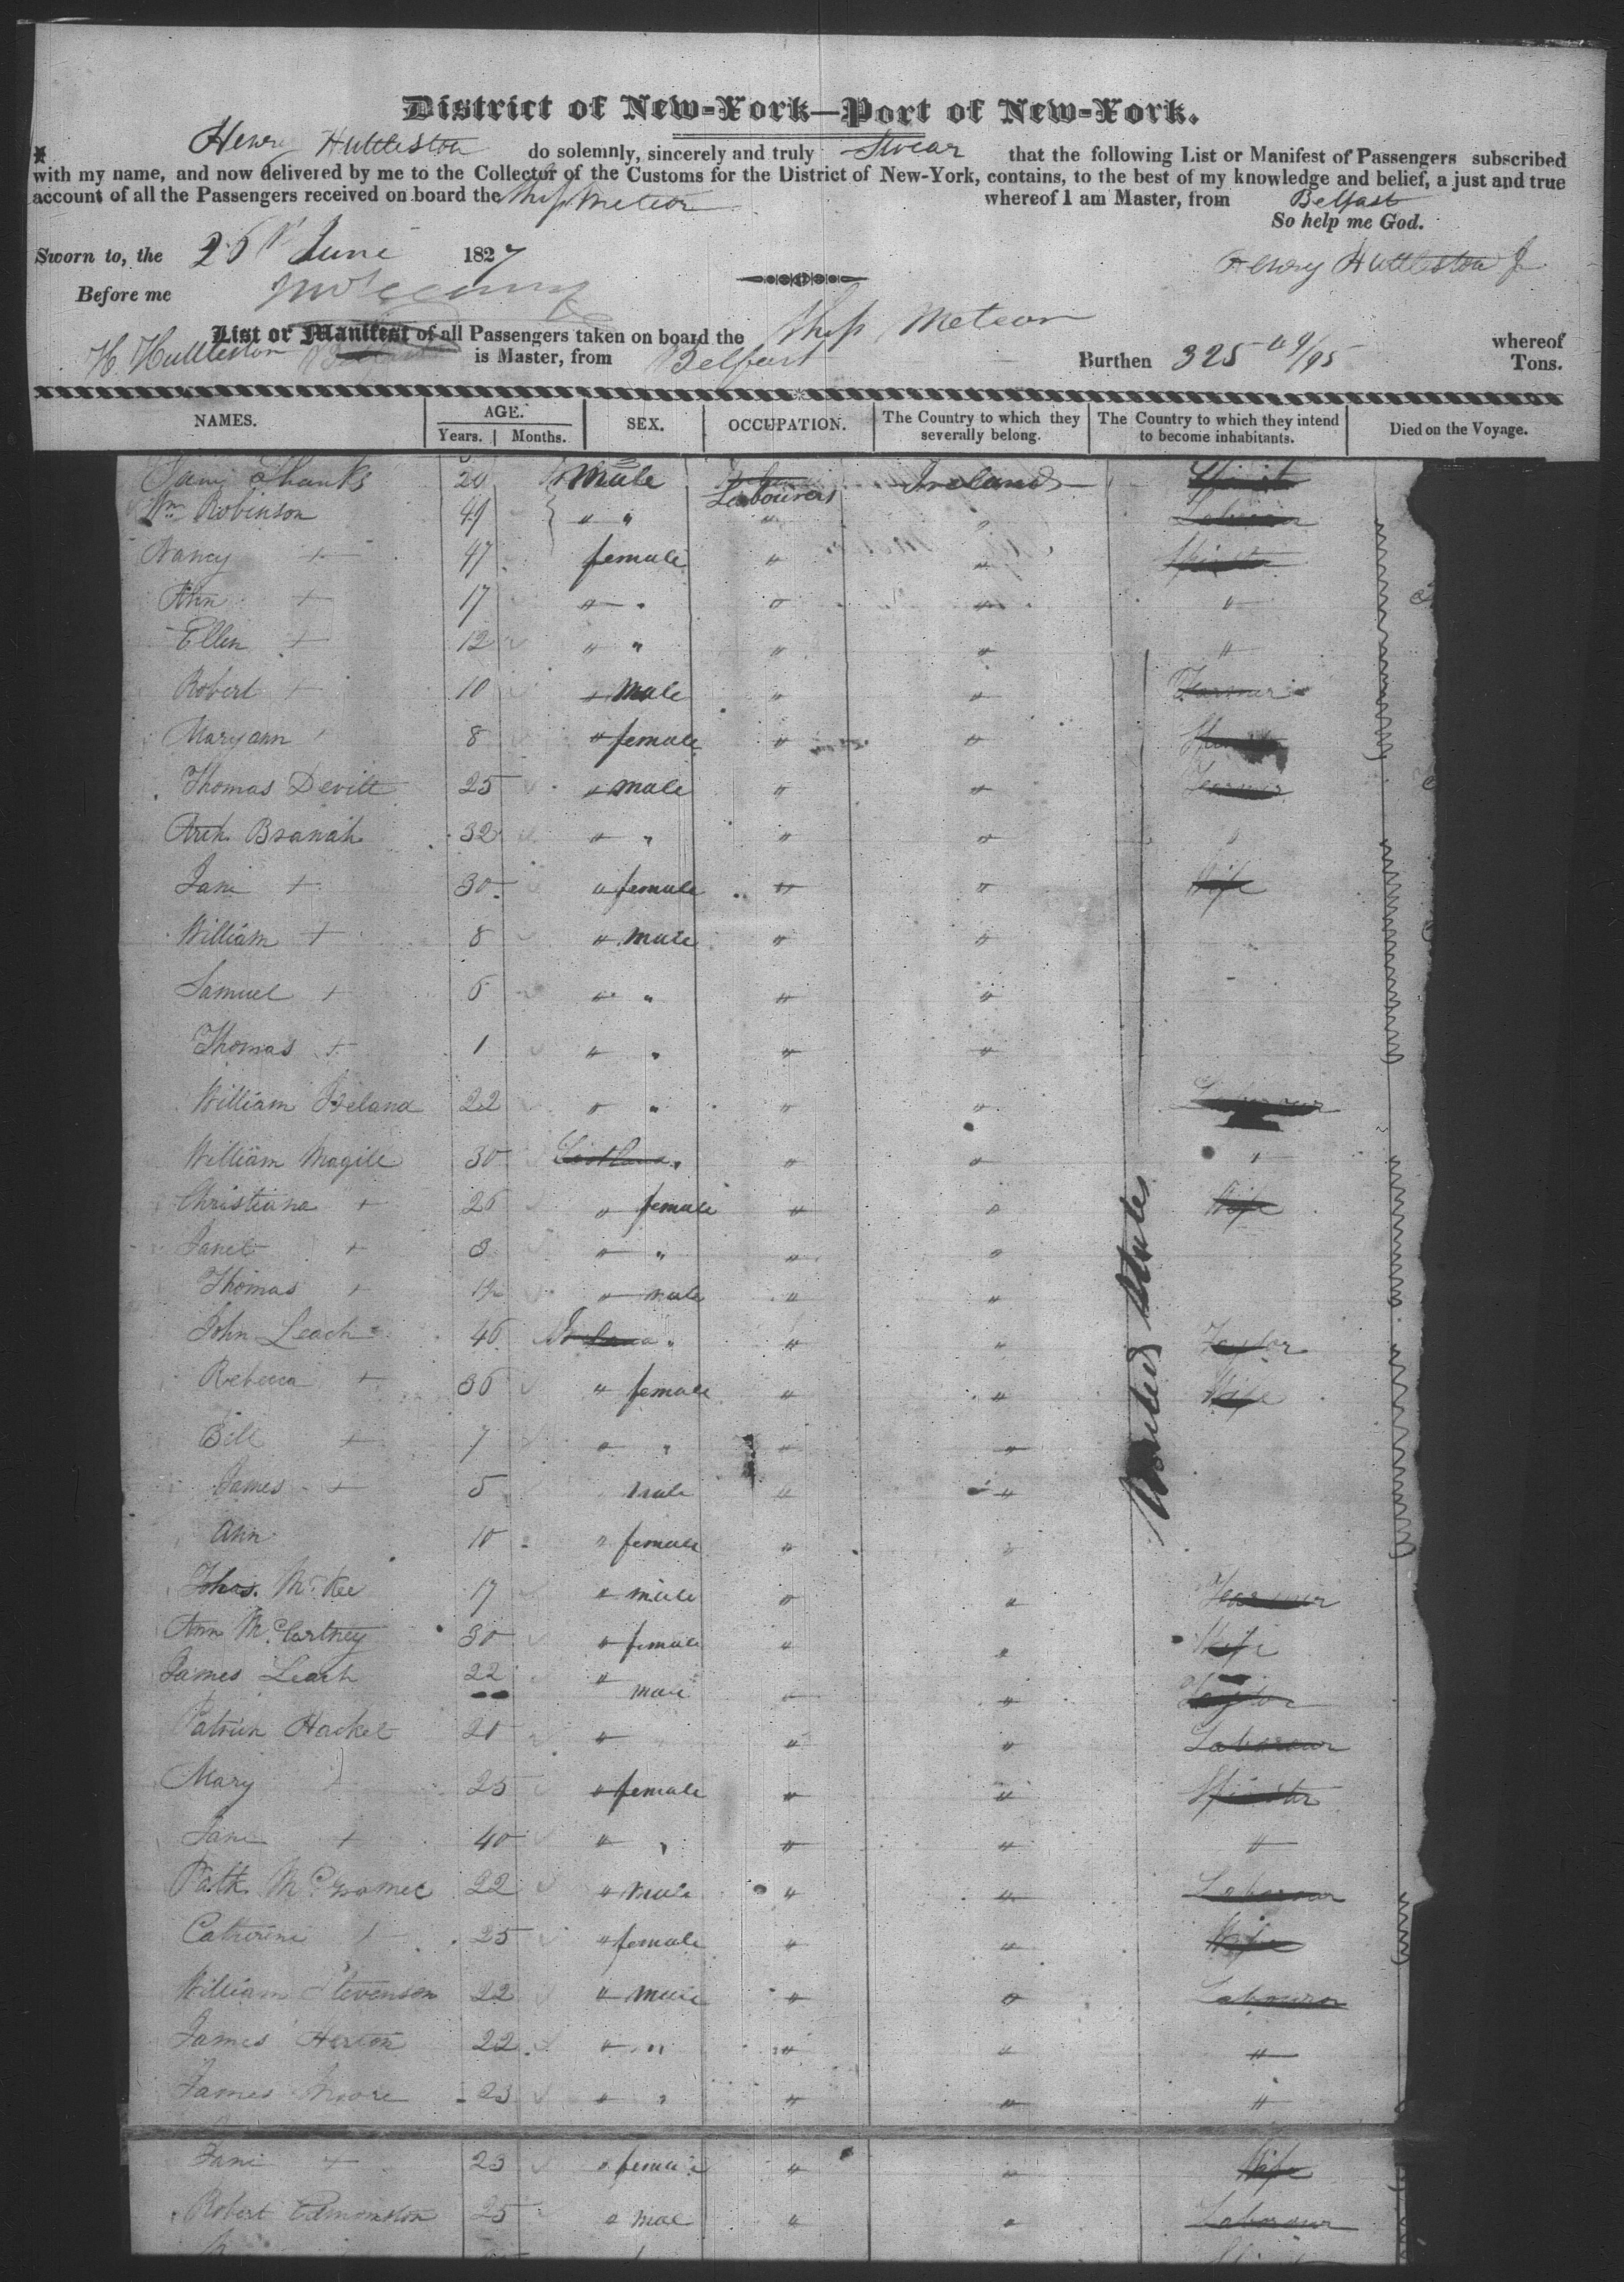 District of New-York—Port of New-York.
Henry Huttleston do solemnly, sincerely and truly Swear that the following List or Manifest of Passengers subscribed
with my name, and now delivered by me to the Collector of the Customs for the District of New-York, contains, to the best of my knowledge and belief, a just and true
account of all the Passengers received on board the Ship Meteor whereof I am Master, from Belfast
So help me God.
Sworn to, the 25th June 1827
Henry Huttleston Jr
Before me
List or Manifest of all Passengers taken on board the Ship Meteor whereof
H. Huttleston is Master, from Belfast Burthen 325 /95 Tons.
NAMES. AGE. Years. Months. SEX. OCCUPATION. The Country to which they severally belong. The Country to which they intend to become inhabitants. Died on the Voyage.
Shanks 20 Male Labourers Ireland Spinst
Wm Robinson 49 " " " " Labourer
Nancy + 47 female " " Spinst
Ann + 17 " " " " "
Ellen + 12 " " " " "
Robert + 10 " Male " " Farmer
Maryann + 8 " female " "
Thomas Devitt 25 " male " " Farmer
Arch. Branah 32 " " " " "
Jane + 30 " female " " Wife
William + 8 " male " "
Samuel + 6 " " " "
Thomas + 1 " " " "
William Ireland 22 " " " " Labourer
William Magill 30 Scotland " " " "
Christiana + 26 " female " " Wife
Janet + 3 " " " "
Thomas + " male " "
John Leach 46 Ireland " " " Taylor
Rebecca + 36 " female " " Wife
Bell + 7 " " " "
James + 5 male " "
Ann 10 " female " "
United States
McKee 17 " male " " Farmer
Ann McCartney 30 " female " " Wife
James Leach 22 " male " " Taylor
Patrick Hacket 20 " " " Labourer
Mary + 25 " female " " Spinster
Jane + 40 " " " " "
Patk. 22 " male " " Labourer
Catherine + 25 " female " " Wife
William Stevenson 22 " male " " Labourer
James 22 " " " " "
James Moore 23 " " " " "
Jane + 23 " female " " Wife
Robert Edmonston 25 " male " " Labourer